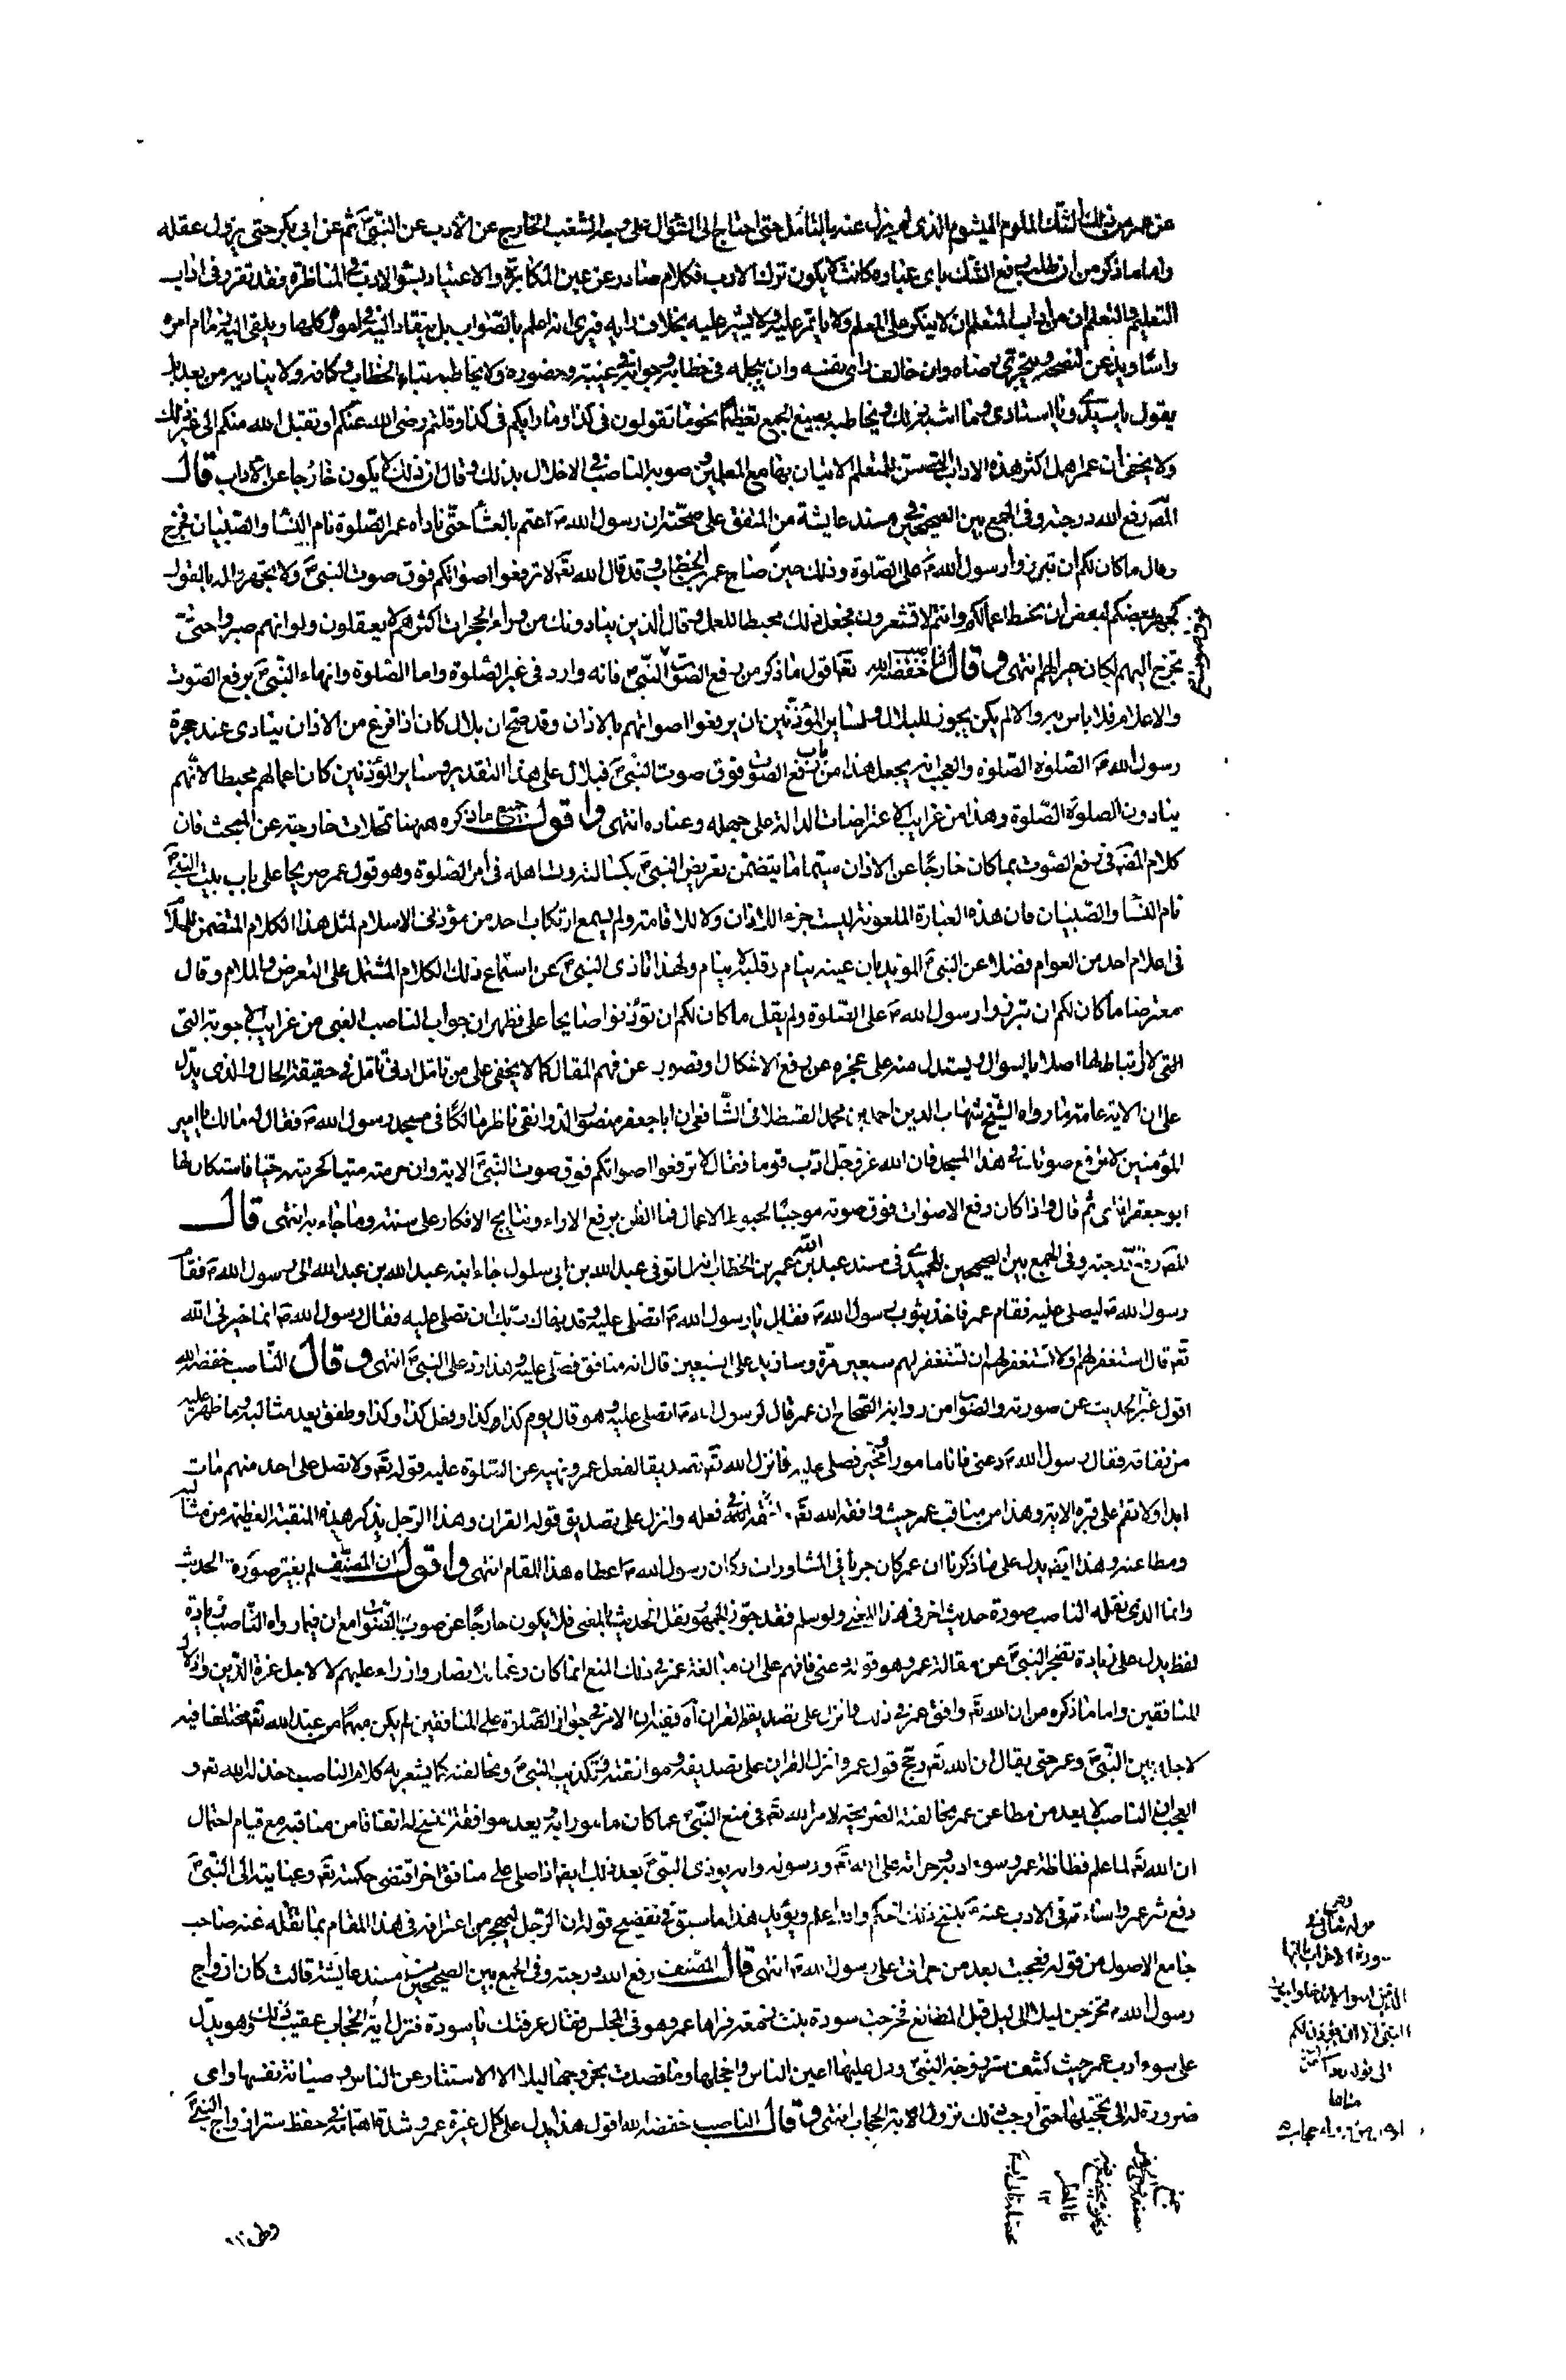 عن عمر من ذلك الشك الملوم الميشوم الذى لم يزل عنه بالتامل حتى احتاج الى السؤال على وجه الشغب الخارج عن الأدب عن النبى ص ثم عن ابى بكر حتى يزول عقله
واما ما ذكر من ان طلب رفع الشك باى عبارة كانت لا يكون ترك الادب فكلام صادر عن عين المكابرة والاعتياد بسوء الادب فى المناظرة فقد تقرر فى اداب
التعليم والتعلم ان من اداب المتعلم ان لا ينكر على المعلم ولا يأتمر عليه ولا يشير عليه بخلاف رايه فيرى انه اعلم بالصواب بل ينقاد اليه فى اموره كلها ويلقى اليه زمام امره
راسا ويذعن لنصحه ويتحرى رضاه وان خالف راى نفسه وان يبجله فى خطابه وجوابه فى غيبته وحضوره ولا يخاطبه بتاء الخطاب وكافه ولا يناديه من بعد بل
يقول يا سيدى ويا استادى وما اشبه ذلك ويخاطبه بصيغ الجمع تعظيما نحو ما تقولون فى كذا وما رايكم فى كذا وقلتم رضى الله عنكم او تقبل الله منكم الى غير ذلك
ولا يخفى ان عمر اهمل اكثر هذه الاداب التى يستن للمتعلم الاتيان بها مع المعلم وصوبه الناصب فى الاخلال بذلك وقال ان ذلك لا يكون خارجا عن الاداب قال
المص رفع الله درجته وفى الجمع بين الصحيحين من مسند عايشة من المتفق على صحته ان رسول الله ص اعتم بالعشا حتى ناداه عمر الصلوة نام النسا والصبيان فخرج
وقال ما كان لكم ان تبرزوا رسول الله ص على الصلوة وذلك حين صاح عمر بن الخطاب وقد قال الله تع لا ترفعوا اصواتكم فوق صوت النبى ص ولا تجهروا له بالقول
كجهر بعضكم لبعض ان تحبط اعمالكم وانتم لا تشعرون فجعل ذلك محبطا للعمل وقال ان الذين ينادونك من وراء الحجرات اكثرهم لا يعقلون ولو انهم صبروا حتى
تخرج اليهم لكان خيرا لهم انتهى وقال الناصب خفضه الله تع اقول ما ذكر من رفع الصوت على النبى ص فانه وارد فى غير الصلوة واما الصلوة وانهاء النبى ص برفع الصوت
والاعلام فلا باس به والا لم يكن يجوز للبلال ولساير المؤذنين ان يرفعوا اصواتهم بالاذان وقد صح ان بلال كان اذا فرغ من الاذان ينادى عند حجرة
رسول الله ص الصلوة الصلوة والعجب انه يجعل هذا من باب رفع الصوت فوق صوت النبى ص فبلال على هذا التقدير وساير المؤذنين كان اعمالهم محبطا لانهم
ينادون الصلوة الصلوة وهذا من غرايب الاعتراضات الدالة على جهله وعناده انتهى واقول جميع ما ذكره ههنا تمحلات خارجة عن المبحث فان
كلام المص فى رفع الصوت بما كان خارجا عن الاذان سيما ما يتضمن تعريض النبى ص بكسالته وتساهله فى أمر الصلوة وهو قول عمر صريحا على باب بيت النبى ص
نام النسا والصبيان فان هذه العبارة الملعونة ليست جزء للاذان ولا للاقامة ولم يسمع ارتكاب احد من مؤذنى الاسلام لمثل هذا الكلام المتضمن للملام
فى اعلام احد من العوام فضلا عن النبى ص المؤيد بان عينه ينام وقلبه لا ينام ولهذا تاذى النبى ص عن استماع ذلك الكلام المشتمل على التعرض والملام وقال
معترضا ما كان لكم ان تبرزوا رسول الله ص على الصلوة ولم يقل ما كان لكم ان تؤذنوا صايحا على فظهر ان جواب الناصب الغبى من غرايب الاجوبة التى
التى لا ارتباط لها اصلا بالسؤال ويستدل منه على عجزه عن رفع الاشكال وقصوره عن فهم المقال كما لا يخفى على من تامل ادنى تامل فى حقيقة الحال والذى يدل
على ان الاية عامة ما رواه الشيخ شهاب الدين احمد بن محمد القسطلانى الشافعى ان ابا جعفر منصور الدوانقى ناظر مالكا فى مسجد رسول الله ص فقال له مالك يا امير
المؤمنين لا ترفع صوتك فى هذا المسجد فان الله عز وجل ادب قوما فقال لا ترفعوا اصواتكم فوق صوت النبى ص الاية وان حرمته ميتا كحرمته حيا فاستكان لها
ابو جعفر انتهى ثم قال واذا كان رفع الاصوات فوق صوته موجبا لحبوط الاعمال فما الظن برفع الاراء ونتايج الافكار على سنته وما جاء به انتهى قال
المص رفع الله درجته وفى الجمع بين الصحيحين للحميدى فى مسند عبد الله بن عمر بن الخطاب انه لما توفى عبد الله بن ابى سلول جاء ابنه عبد الله بن عبد الله الى رسول الله ص فقام
رسول الله ص ليصلى عليه فقام عمر فاخذ بثوب رسول الله ص فقال يا رسول الله ص اتصلى عليه وقد نهاك ربك ان تصلى عليه فقال رسول الله ص انما خيرنى الله
تع قال استغفر لهم او لا تستغفر لهم ان تستغفر لهم سبعين مرة وسازيد على السبعين قال انه منافق فصلى عليه وهذا رد على النبى ص انتهى وقال الناصب خفضه الله
اقول غير الحديث عن صورته والصواب من رواية الصحاح ان عمر قال لرسول الله ص اتصلى عليه وهو قال يوم كذا كذا وكذا وفعل كذا وكذا وطفق يعد مثالبه وما ظهر عليه
من نفاقه فقال رسول الله ص دعنى فانا مامور او مخير فصلى عليه فانزل الله تع تصديقا لفعل عمر ونهيه عن الصلوة عليه قوله تع ولا تصل على احد منهم مات
ابدا ولا تقم على قبره الاية وهذا من مناقب عمر حيث وافقه الله تع فى فعله وانزل على تصديق قوله القران وهذا الرجل يذكر هذه المنقبة العظيمة من مثالبه
ومطاعنه وهذا ايضا يدل على ما ذكرنا ان عمر كان جريا فى المشاورات وكان رسول الله ص اعطاه هذا المقام انتهى واقول ان المصنف لم يغير صورة الحديث
وانما الذى نقله الناصب صورة حديث اخر فى هذا المعنى ولو سلم فقد جوز الجمهور نقل الحديث بالمعنى فلا يكون خارجا عن صوب الصواب مع ان فيما رواه الناصب زيادة
لفظ يدل على زيادة تضجر النبى ص عن مقالة عمر وهو قوله دعنى فافهم على ان مبالغة عمر فى ذلك المنع انما كان رغما للانصار وازراء عليهم لا لاجل عزة الدين واذلال
المنافقين واما ما ذكره من ان الله تع وافق عمر فى ذلك وانزل على تصديقه القران آه ففيه ان الامر فى جواز الصلوة على المنافقين لم يكن مبهما من عند الله تع مختلفا فيه
لاجله بين النبى ص وعمر حتى يقال ان الله تع رجح قول عمر وانزل القران على تصديقه وموافقته وتكذيب النبى ص ومخالفته كما يشعر به كلام الناصب خذله الله تع و
العجب ان الناصب لا يعد من مطاعن عمر مخالفته الصريحة لامر الله تع فى منع النبى ص عما كان مامورا به ويعد موافقة النسخ له اتفاقا من مناقبه مع قيام احتمال
ان الله تع لما علم فظاظة عمر وسوء ادبه وجراته على الله تع ورسوله وانه يوذى النبى ص بعد ذلك ايضا اذا صلى على منافق اخر اقتضى حكمته تع وعنايته الى النبى ص
دفع شر عمر واساءته فى الادب عنه ص بنسخ ذلك الحكم والله اعلم ويؤيد هذا ما سبق فى تفضيح قوله ان الرجل ليهجر من اعترافه فى هذا المقام بما نقله عنه صاحب
جامع الاصول من قوله فعجبت بعد من جراتى على رسول الله ص انتهى قال المصنف رفع الله درجته وفى الجمع بين الصحيحين من مسند عايشة قالت كان ازواج
رسول الله ص تخرجن ليلا الى ليل قبل المصانع فخرجت سودة بنت زمعة فراها عمر وهو فى المجلس فقال عرفتك يا سودة فنزل اية الحجاب عقيب ذلك وهو يدل
على سوء ادب عمر حيث كشف ستر زوجة النبى ص ودل عليها اعين الناس واخجلها وما قصدت بخروجها ليلا الا الاستتار عن الناس وصيانة نفسها واى
ضرورة له الى تخجيلها حتى اوجب ذلك نزول الاية الحجاب انتهى وقال الناصب خفضه الله اقول هذا يدل على كمال غيرة عمر وشدة اهتمامه فى حفظ ستر ازواج النبى ص
وهى
قوله تعالى فى
سورة الاحزاب يا ايها
الذين امنوا لا تدخلوا بيوت
النبى الا ان يؤذن لكم
من وراء حجاب